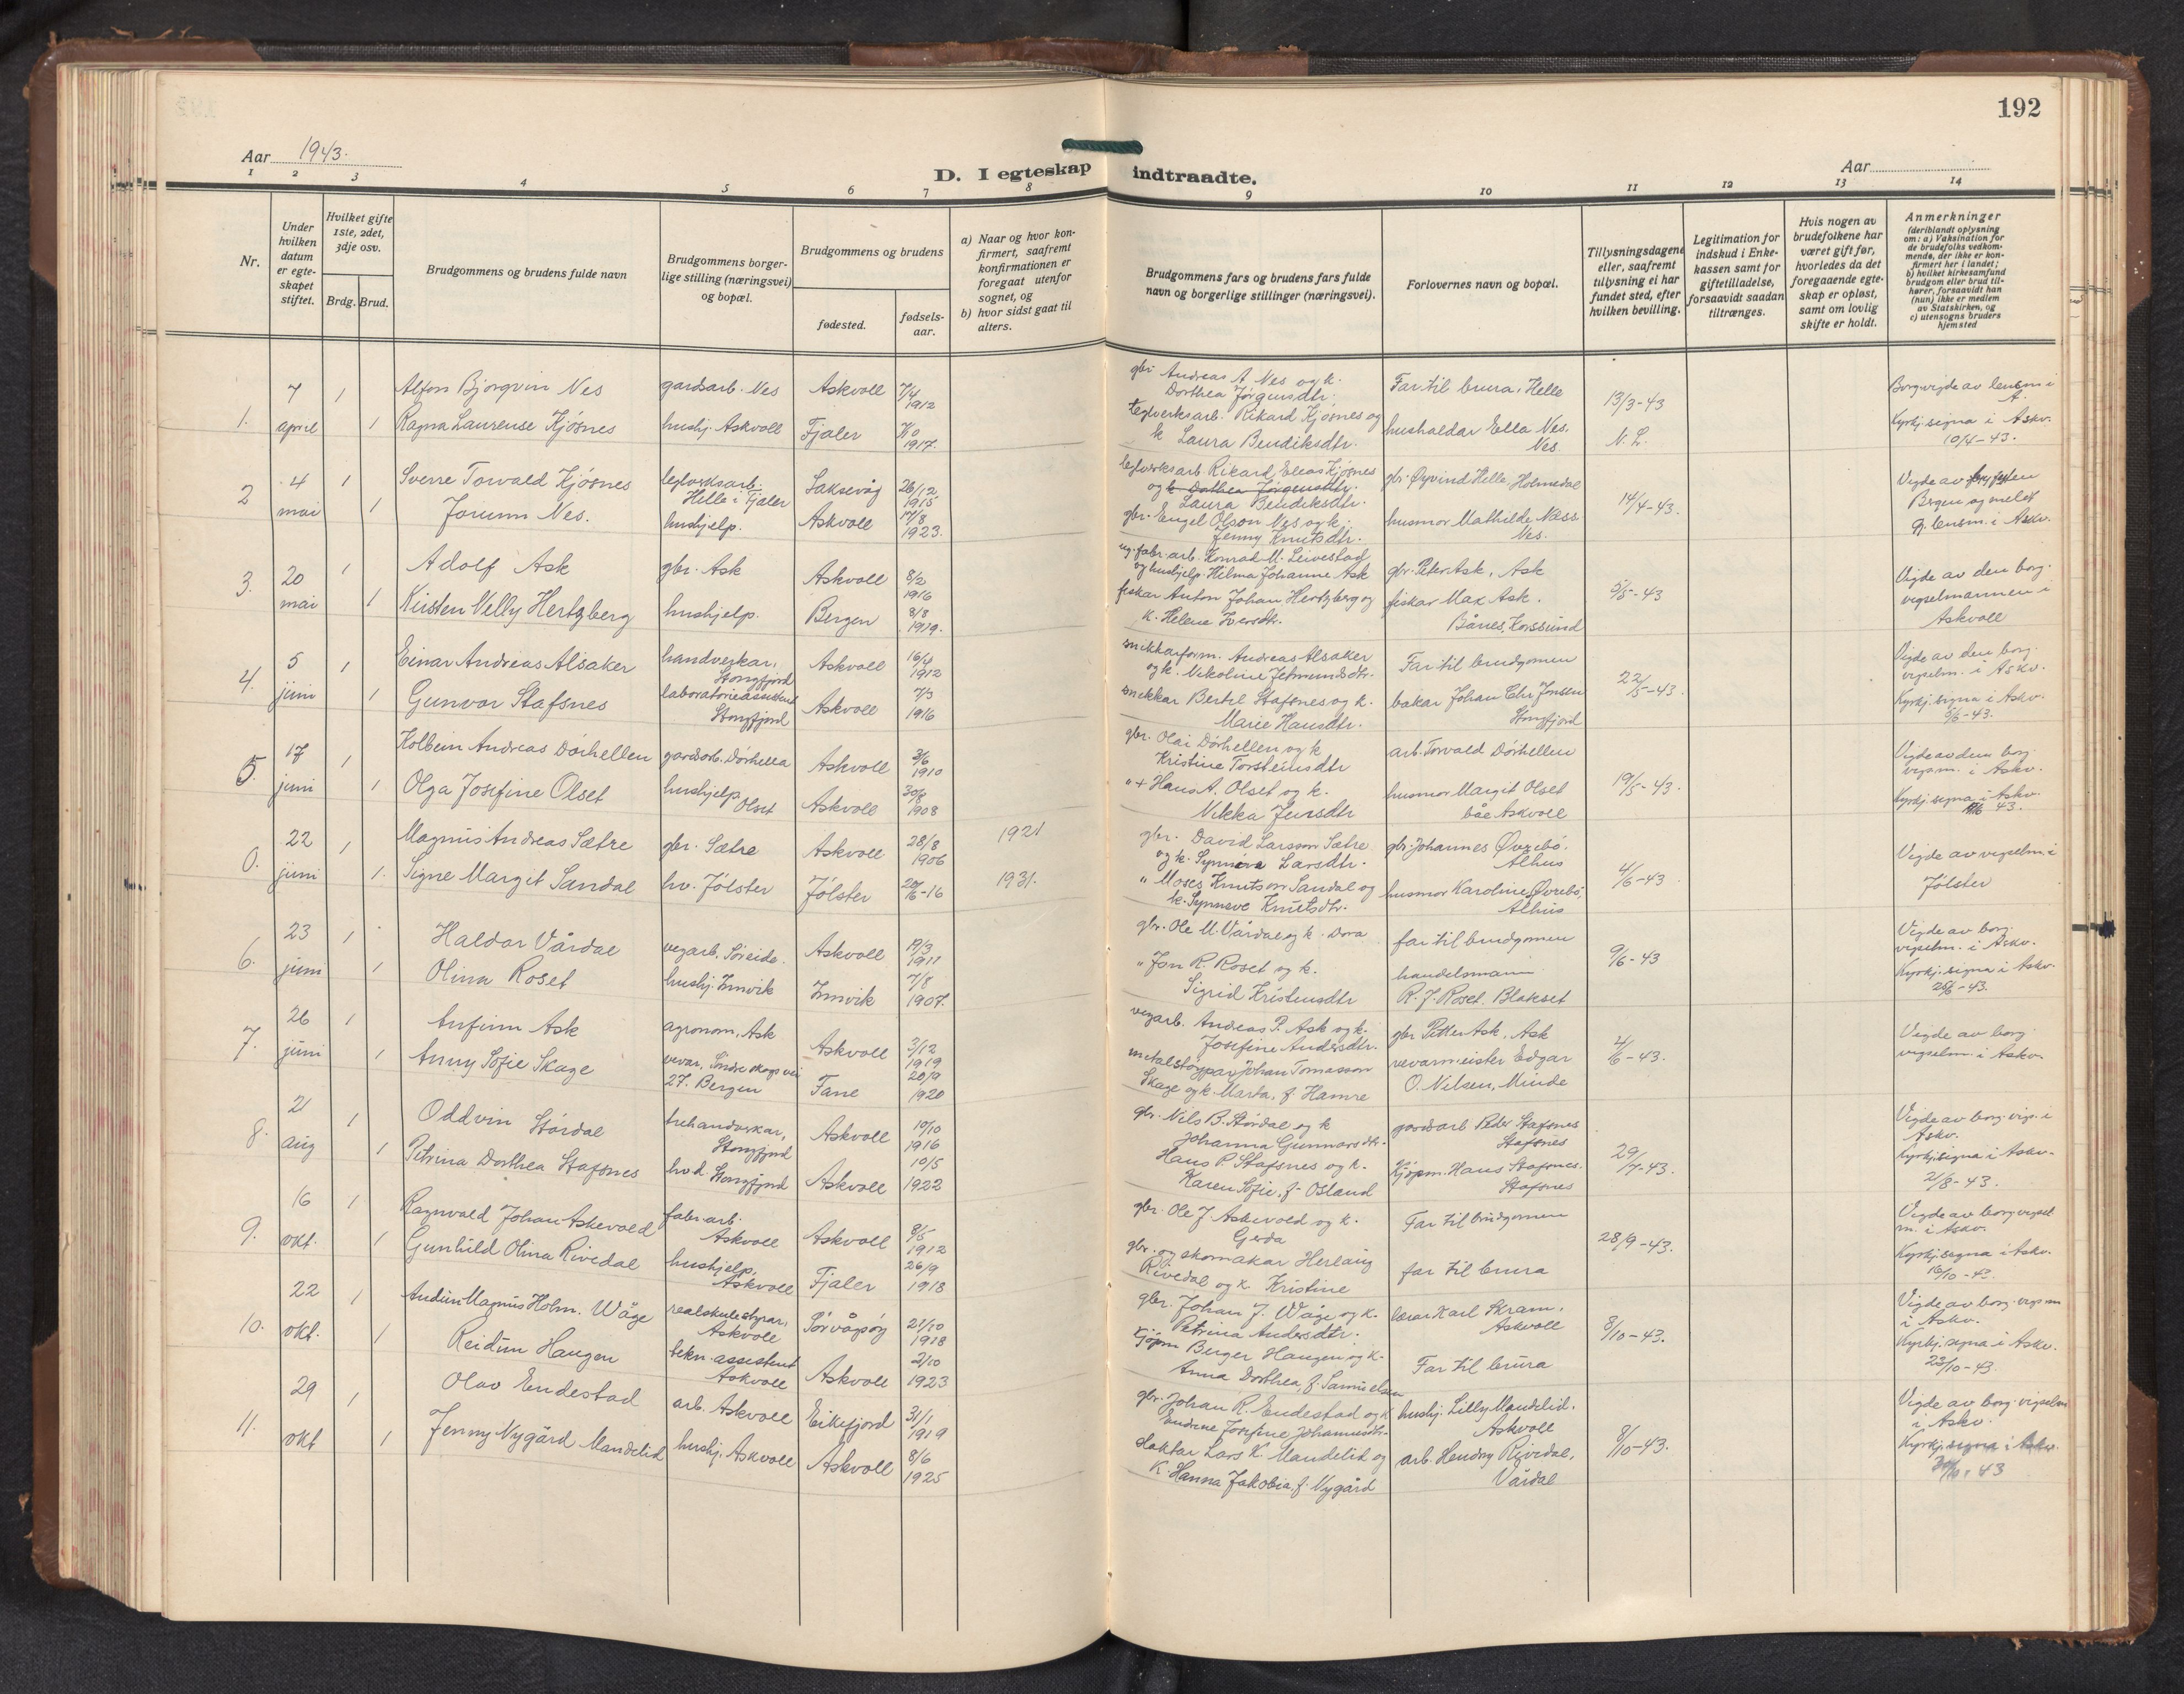 192
Aar 1943.
D. I egteskap indtraadte.
Aar
1 2 3 4 5 6 7 8 9 10 11 12 13 14
Nr.
Under hvilken datum er egte-skapet stiftet.
Hvilket gifte 1ste, 2det, 3dje osv.
Brdg. Brud.
Brudgommens og brudens fulde navn
Brudgommens borger-lige stilling (næringsvei) og bopæl.
Brudgommens og brudens
fødested.
fødsels-aar.
a) Naar og hvor kon-firmert, saafremt konfirmationen er foregaat utenfor sognet, og
b) hvor sidst gaat til alters.
Brudgommens fars og brudens fars fulde navn og borgerlige stillinger (næringsvei).
Forlovernes navn og bopæl.
Tillysningsdagene eller, saafremt tillysning ei har fundet sted, efter hvilken bevilling.
Legitimation for indskud i Enke-kassen samt for giftetilladelse, forsaavidt saadan tiltrænges.
Hvis nogen av brudefolkene har været gift før, hvorledes da det foregaaende egte-skap er opløst, samt om lovlig skifte er holdt.
Anmerkninger
(deriblandt oplysning om: a) Vaksination for de brudefolks vedkom-mende, der ikke er kon-firmert her i landet;
b) hvilket kirkesamfund brudgom eller brud til-hører, forsaavidt han (hun) ikke er medlem av Statskirken, og
c) utensogns bruders hjemsted
1. 7 april
1 Alfon Bjørgvin Nes gardsarb. Nes Askvoll 7/4 1912
gbr. Andreas A. Nes og k. Dorthea Jørgensdtr.
Far til brura, Helle
13/3-43
Borg.vigde av lensm i A.
1 Ragna Laurense Kjøsnes hushj. Askvoll Fjaler 1917.
teglverksarb. Rikard Kjøsnes og k Laura Bendiksdtr.
husholdar Ella Nes. Nes
N. L.
Kyrkj.signa i Askv. 10/4-43.
2 4 mai
1 Sverre Torvald Kjøsnes teglverksarb. Helle i Fjaler Laksevåg 26/12 1915
teglverksarb Rikard Elias Kjøsnes og k Dorthea Jørgensdtr. Laura Bendiksdtr.
gbr. Øyvind Helle, Holmedal
14/4-43.
1 Jorunn Nes. hushjelp. Askvoll 17/8 1923.
gbr. Engel Olson Nes og k. Jenny Knutsdtr.
husmor Mathilde Næss. Nes.
Bergen og meldt g. lensm. i Askv.
3. 20 mai
1 Adolf Ask gbr. Ask Askvoll 8/2 1916
ug. fabr.arb. Konrad M. Leivestad og hushjelp Hilma Johanne Ask
gbr. Peter Ask, Ask
5/5-43
Vigde av den borg. vigselmannen i Askvoll
1 Kirsten Nelly Hertzberg hushjelp. Bergen 8/8 1919.
fiskar Anton Johan Hertzberg og k. Helene Iversdtr.
fiskar Max Ask. Bånes, Korssund
4. 5 juni
1 Einar Andreas Alsaker handverkar, Stongfjord Askvoll 16/4 1912
snikkarform. Andreas Alsaker og k. Nikoline Jetmundsdtr.
Far til brudgomen
22/5-43.
Vigde av den borg. vigselm. i Askv.
1 Gunvor Stafsnes laboratorieassistent Stongfjord Askvoll 7/3 1916
snekkar Bertel Stafsnes og k. Marie Hansdtr.
bakar Johan Chr. Jensen Stongfjord
Kyrkj.signa i Askv. 5/6-43.
5. 17 juni
1 Kolbein Andreas Dørhellen gardsarb. Dørhella Askvoll 3/6 1910
gbr. Olai Dørhellen og k Kristine Torsteinsdtr
arb. Torvald Dørhellen
19/5-43.
Vigde av den borg. vigsm. i Askv.
1 Olga Josefine Olset hushjelp Olset Askvoll 30/6 1908
" + Hans A. Olset og k. Nikka Jensdtr
husmor Margit Olset båe Askvoll
Kyrkj.signa i Askv. 43.
0. 22 juni
1 Magnus Andreas Sætre gbr. Sætre Askvoll 28/8 1906 1921
gbr. David Larsson Sætre og k. Synnøva Larsdtr.
gbr. Johannes Øvrebø. Alhus
4/6-43
Vigde av vigselm. i Jølster
1. Signe Margit Sandal hv. Jølster Jølster 20/6-16 1931.
" Moses Knutson Sandal og k. Synneve Knutsdtr.
husmor Karoline Øvrebø, Alhus
6. 23 juni
1 Haldor Vårdal vegarb. Søreide. Askvoll 19/3 1911
gbr. Ole M. Vårdal og k. Dora
far til brudgomen
9/6-43
Vigde av borg. vigselm. i Askv.
1 Olina Roset hushj. Innvik Innvik 7/8 1907.
" Jon R. Roset og k. Sigrid Kristensdtr
handelsmann R. J. Roset. Blakset
Kyrkj.signa i Askv. 26/6-43.
7. 26 juni
1 Anfinn Ask agronom, Ask Askvoll 3/12 1919
vegarb. Andreas P. Ask og k. Josefine Andersdtr.
gbr Petter Ask, Ask
4/6-43.
Vigde av borg. vigselm. i Askv.
1 Anny Sofie Skage vevar, Søndre skogv vei 27. Bergen Fane 20/9 1920
metalstøypar Johan Tomasson Skage og k. Marta, f. Hamre
vevarmeister Edgar O. Nilsen, Minde
8. 21 aug
1 Oddvin Stårdal trehandverkar, Stongfjord Askvoll 19/10 1916
gbr. Nils B. Stårdal og k Johanna Gunnarsdtr.
gardsarb Peder Stafsnes Stafsnes
29/7-43.
Vigde av borg. vigs. i Askv.
1 Petrina Dorthea Stafsnes hvd. Stongfjord Askvoll 10/5 1922
Hans P. Stafsnes og k. Karen Sofie, f. Osland
Kjøpm. Hans Stafsnes. Stafsnes
Kyrkj.signa i Askv. 21/8-43.
9. 16 okt.
1 Ragnvald Johan Askevold fabr.arb. Askvoll Askvoll 8/5 1912
gbr. Ole J. Askevold og k. Gerda
Far til brudgomen
28/9-43.
Vigde av borg vigsel m. i Askv.
1 Gunhild Olina Rivedal hushjelp, Askvoll Fjaler 26/9 1918
gbr. og skomakar Herlaug Rivedal og k. Kristine
far til brura
Kyrkj.signa i Askv. 16/10-43.
10. 22 okt.
1 Audun Magnus Holm. Wåge realskulestyrar, Askvoll Sørvågsøy 21/10 1918
gbr. Johan J. Wåge og k. Petrina Andersdtr.
lærar Karl Skram, Askvoll
8/10-43.
Vigde av borg. vigsm i Askv.
1 Reidun Haugen tekn. assistent Askvoll Askvoll 2/10 1923
Kjøpm Berger Haugen og k. Anna Dorthea, f. Samuelsen
Far til brura
Kyrkj.signa i Askv. 23/10-43.
11. 29 okt
1 Olav Endestad arb. Askvoll Eikefjord 31/1 1919
gbr. Johan R. Endestad og k Andrine Josefine Johannesdtr.
hushj. Lilly Mandelid. Askvoll
8/10-43.
Vigde av borg. vigselm i Askv.
1 Jenny Nygård Mandelid hushj. Askvoll Askvoll 8/6 1925
doktar Lars K. Mandelid og k. Hanna Jakobia, f. Nygård
arb. Hendry Rivedal, Vårdal
Kyrkj.signa i Askv. 30/10-43